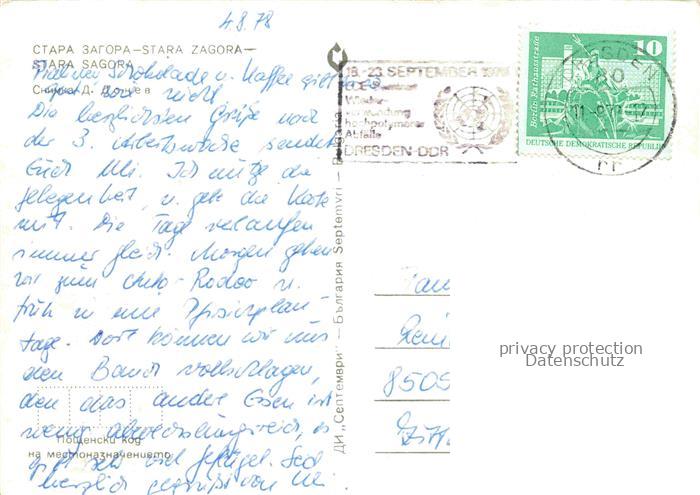 4.8.78
СТАРА ЗАГОРА—STARA ZAGORA—
STARA SAGORA
Schokolade u. Kaffee gibt es
gar nicht
Die herzlichsten Grüße nach
der 3. Arbeitswoche sendet
Euch Uli. Ich nutze die
Gelegenheit, u. gebe die Karte
mit. Die Tage verlaufen
immer gleich. Morgen gehen
wir zum u.
früh in eine Pfirsichplan-
tage. Dort können wir uns
den Bauch vollschlagen,
denn das andre Essen ist
wenig abwechslungsreich, es
gibt sehr viel Geflügel. Seid
herzlich gegrüßt von Uli.
Пощенски код
на местоназначението
ДИ „Септември" — България Septemvri — Bulgaria
18.-23. SEPTEMBER
Wieder-
verwendung
hochpolymerer
Abfälle
DRESDEN-DDR
10
Berlin, Rathausstraße
DEUTSCHE DEMOKRATISCHE REPUBLIK
DRESDEN
8505
privacy protection
Datenschutz